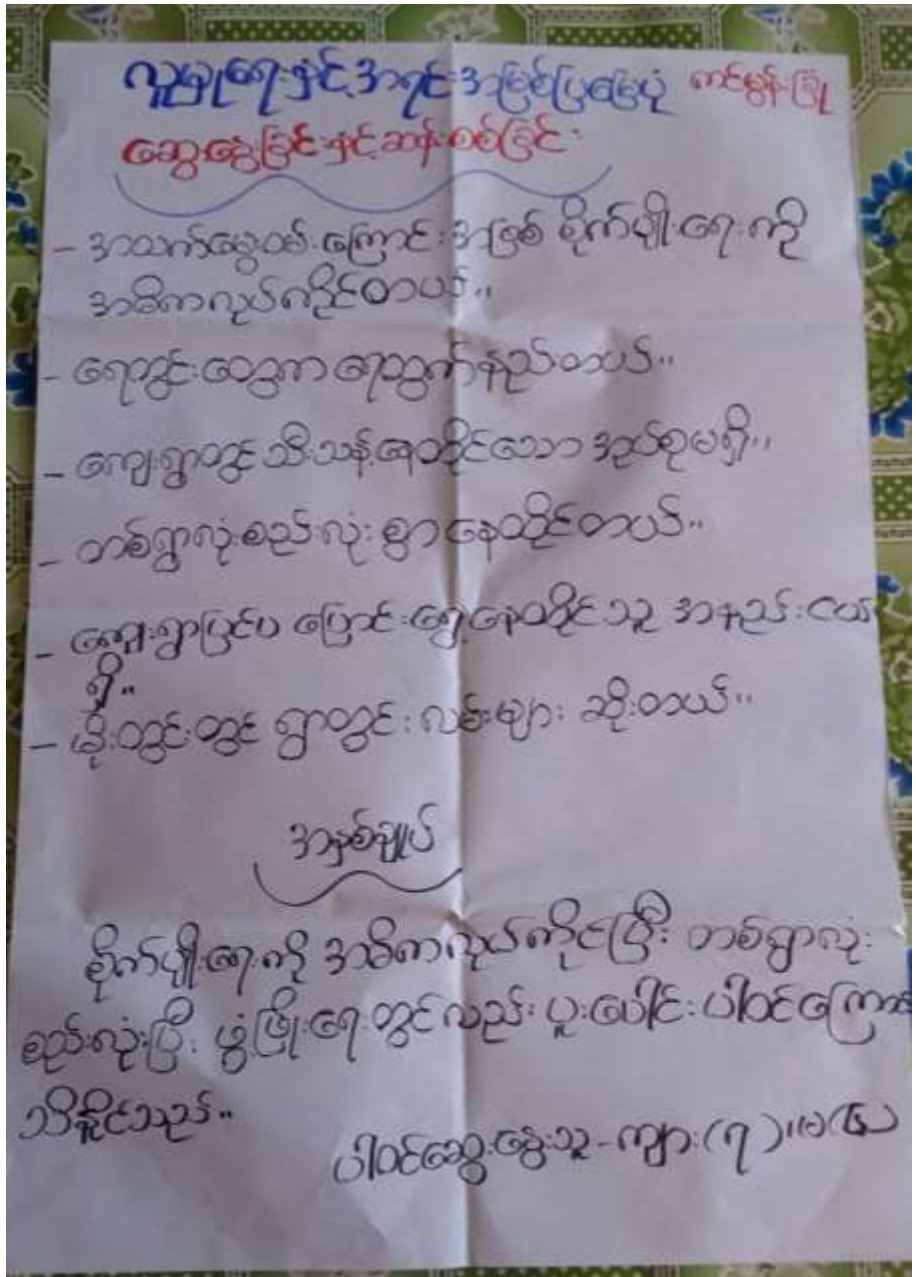 လူမှုရေးနှင့်အရင်းအမြစ်ပြမြေပုံ ကင်မွန်းခြုံ
ဆွေးနွေးခြင်းနှင့်ဆန်းစစ်ခြင်း
- အသက်မွေးဝမ်းကြောင်းအဖြစ် စိုက်ပျိုးရေးကို
အဓိကလုပ်ကိုင်တယ်။
- ရေတွင်းတွေက ရေထွက်နည်တယ်။
- ကျေးရွာတွင် သီးသန့်နေထိုင်သော အုပ်စုမရှိ။
- တစ်ရွာလုံးစည်းလုံးစွာနေထိုင်တယ်။
- ကျေးရွာပြင်ပ ပြောင်းရွှေ့နေထိုင်သူ အနည်းငယ်
ရှိ။
- မိုးတွင်းတွင် ရွာတွင်းလမ်းများ ဆိုးတယ်။
အနှစ်ချုပ်
စိုက်ပျိုးရေးကို အဓိကလုပ်ကိုင်ပြီး တစ်ရွာလုံး
စည်းလုံးပြီး ဖွံ့ဖြိုးရေးတွင်လည်း ပူးပေါင်းပါဝင်ကြောင်း
သိနိုင်သည်။
ပါဝင်ဆွေးနွေးသူ - ကျား(၇)၊မ